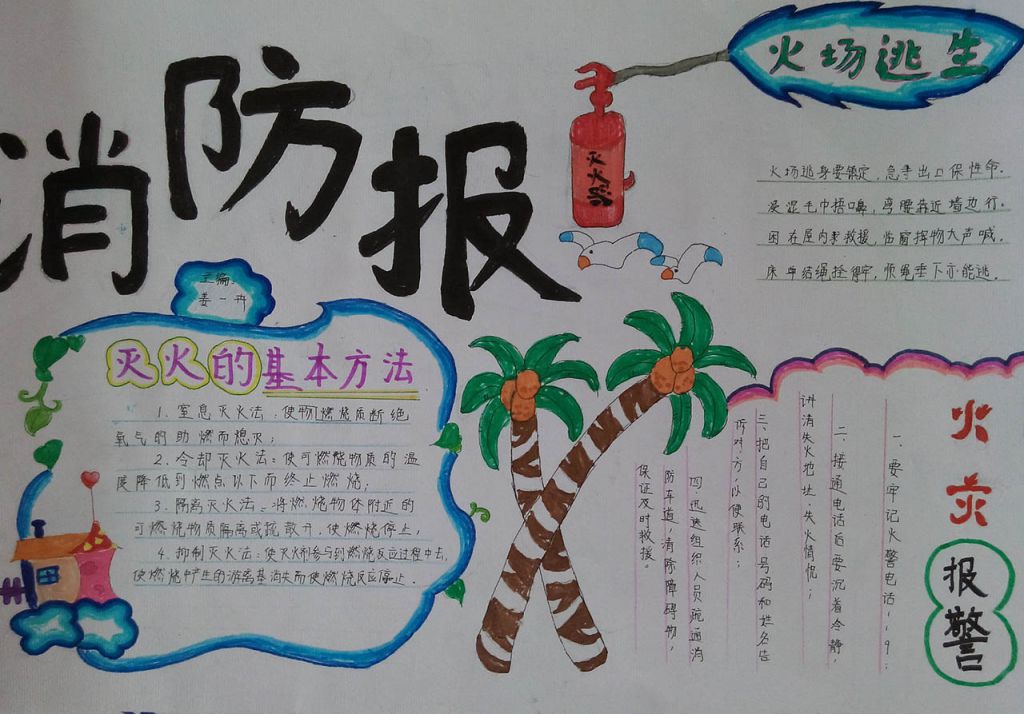 消防报
主编:
姜一卉
灭火器
火场逃生
火场逃身要镇定,急寻出口保性命。
浸湿毛巾捂口鼻,弯腰靠近墙边行。
困在屋内求救援,临窗挥物大声喊。
床单结绳拴得牢,顺绳垂下亦能逃。
灭火的基本方法
1.室息灭火法:使物燃烧质断绝
氧气的助燃而熄灭;
2.冷却灭火法:使可燃烧物质的温
度降低到燃点以下而终止燃烧;
3.隔离灭火法:将燃烧物体附近的
可燃烧物质隔离或疏散开,使燃烧停止,
4.抑制灭火法:使灭火剂参与到燃烧反应过程中去,
使燃烧中产生的游离基消失而使燃烧反应停止.
火灾
报警
一、要牢记火警电话119;
二、接通电话后要沉着冷静,
讲清失火地址,失火情况;
三、把自己的电话号码和姓名告
诉对方,以便联系;
四、迅速组织人员疏通消
防车道,清除障碍物,
保证及时救援。